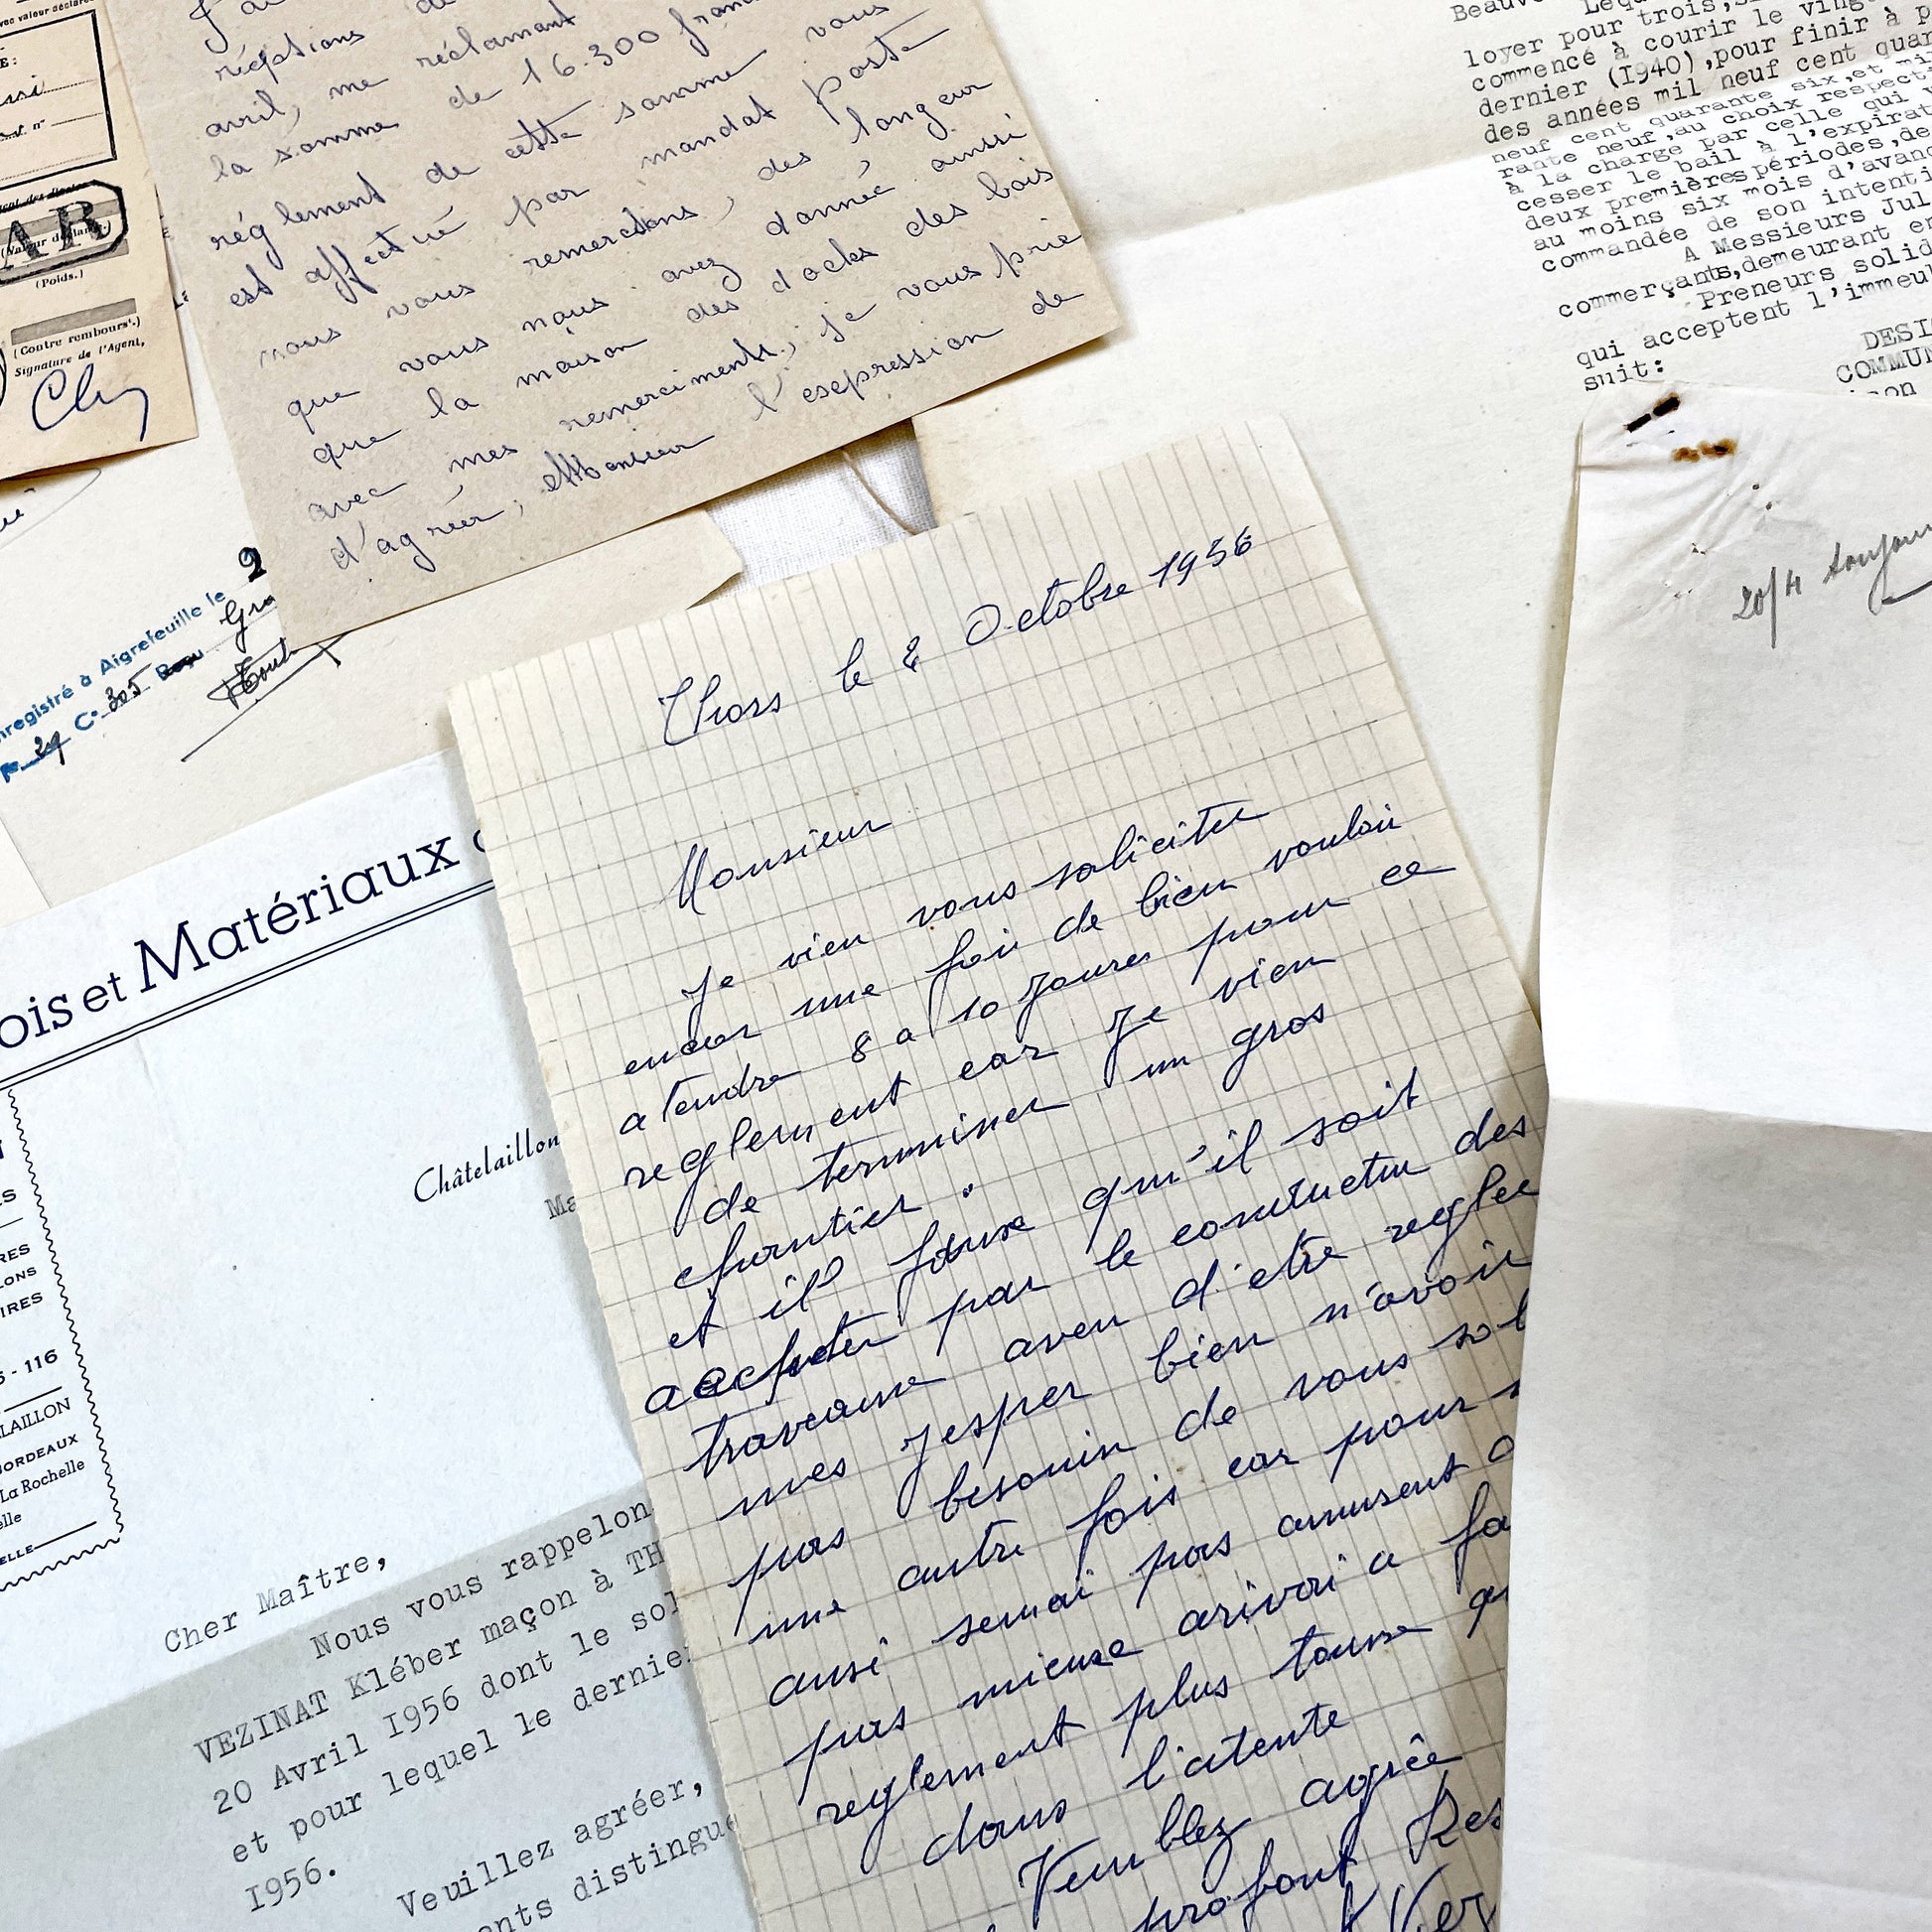 avec valeur déclarée
(Valeur déclarée.)
AR
(Poids.)
(Contre rembours'.)
Signature de l'Agent,
J'ai
réceptions de
avril, me réclamant
la somme de 16.300 francs
réglement de cette somme vous
est affectué par mandat Poste
nous vous remercions, des longeur
que vous nous avez donnée ainsi
que la maison des docks des bois
avec mes remerciments, je vous prie
d'agréer, Monsieur l'esepression de
Beauv
Leque
loyer pour trois, si
commencé à courir le vingt
dernier (I940), pour finir à p
des années mil neuf cent quar
neuf cent quarante six, et mi
rante neuf, au choix respecti
à la charge par celle qui v
cesser le bail à l'expirat
deux premières périodes, de
au moins six mois d'avanc
commandée de son intenti
A Messieurs Jul
commerçants, demeurant en
Preneurs solid
qui acceptent l'immeu
suit:
DESI
COMMUN
20/4
nregistré à Aigrefeuille le 2
F° 39 C° 305 Reçu
ois et Matériaux
Châtelaillon
Ma
S
RES
LONS
IRES
5 - 116
LAILLON
BORDEAUX
La Rochelle
elle
ELLE
Cher Maître,
Nous vous rappelon
VEZINAT Kléber maçon à TH
20 Avril I956 dont le sol
et pour lequel le dernie
I956.
Veuillez agréer,
ents distingué
Thors le 2 Octobre 1956
Monsieur
Je vien vous soliciter
encor une foi de bien vouloir
atendre 8 a 10 Joures pour ce
reglement car Je vien
de terminer un gros
chantier.
et il faux qu'il soit
accheter par le conructeur des
traveaux aven d'etre reglee
mes Jesper bien n'avoir
pas besouin de vous sol
une autre fois car pour
ausi semai pas amusent
pas mieuxe arivai a fa
reglement plus tause
dans l'atente
Veuiblez agrée
profont Res
Vez